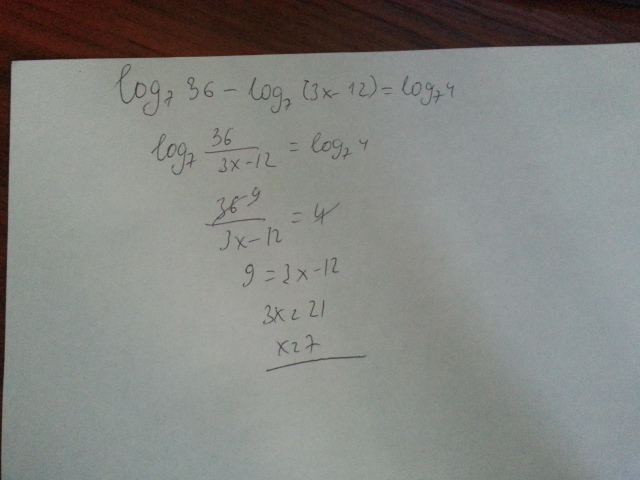 log₇ 36 - log₇ (3x-12) = log₇ 4
log₇ 36/(3x-12) = log₇ 4
36 9/(3x-12) = 4
9 = 3x-12
3x = 21
x = 7